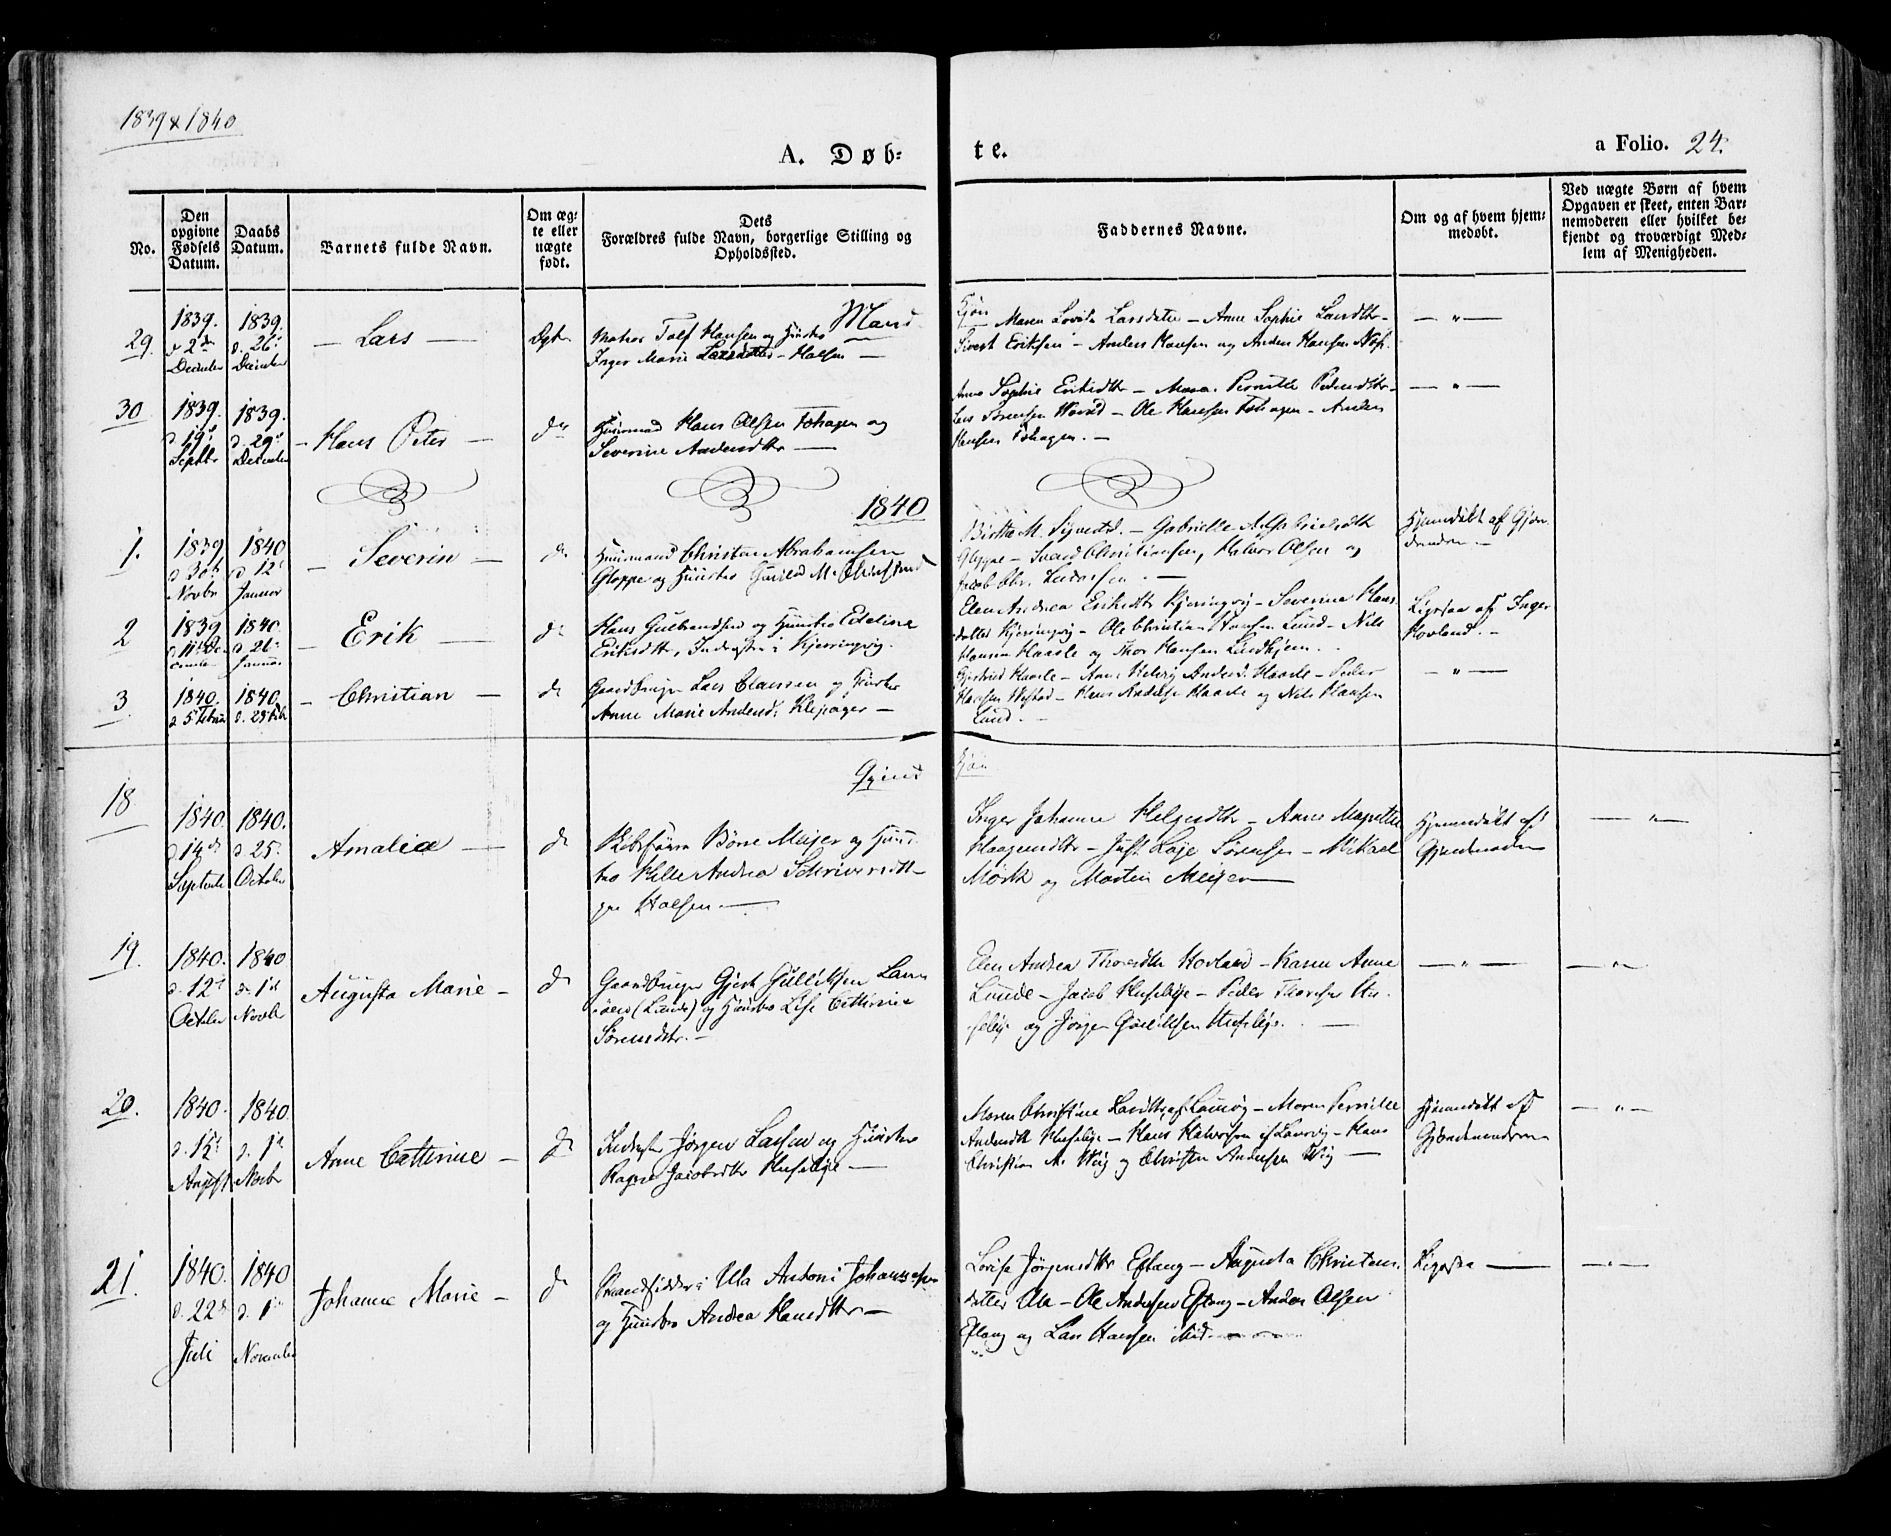 1839 & 1840
A. Døb-te.
a Folio. 24.
No.
Den opgivne Fødsels Datum.
Daabs Datum.
Barnets fulde Navn.
Om æg-te eller uægte født.
Dets Forældres fulde Navn, borgerlige Stilling og Opholdssted.
Faddernes Navne.
Om og af hvem hjem-medøbt.
Ved uægte Børn af hvem Opgaven er skeet, enten Bar-nemoderen eller hvilket be-kjendt og troværdigt Med-lem af Menigheden.
Mand
Kjøn
29.
1839.
d 2den
December
1839.
d. 26
December
Lars
Ægte
Matros Hansen og Hustro
Inger Marie Larsdatter - Halsen
Maren Lovise Larsdatter - Anne Sophie Larsdtr -
Sivert Eriksen - Anders Hansen og Anders Hansen
— " —
30
1839.
d 19
Septbr
1839.
d. 29
December
Hans Peter
do
Huusmand Hans Olsen Fohagen og
Severine Andersdtr
Anne Sophie Eriksdtr - Maren Pernille Pedersdtr -
Lars Sørensen - Ole Hansen Fohagen - Anders
Hansen Fohagen. —
— " —
1840
1.
1839
d 30
Novbr
1840
d 12
Januar
Severin
do
Huusmand Christen Abrahamsen
Gloppe og Hustro Gunild M.
Birthe M. - Gabrielle A.
Gloppe - Svend Christiansen, Halvor Olsen og
Jacob Chr. Larsen. —
Hjemmedøbt af Gjor-
demoderen. —
2
1839
d 11
1840.
d. 26
Januar
Erik
do
Hans Gulbrandsen og Hustro Edeline
Eriksdtr, Inderster i Kjerringvig.
Elen Andrea Eriksdtr Kjerringvig - Severine Hans-
datter Kjerringvig - Ole Christian Hansen Lund - Nils
Hansen Haasle og Thor Hansen Lindhjem.
Ligesaa af Inger
Hovland. —
3
1840.
d 5 Februar
1840.
d. 23 Feb
Christian
do
Gaardbruger Lars Clausen og Hustro
Anne Marie Andersd. Klepager —
Haasle - Anne Helvig Andersd. Haasle - Peder
Hansen - Hans Andersen Haasle og Nils Hansen
Lund. —
— " —
Qvind
Kjøn
18
1840.
d 14de
Septembr
1840.
d. 25
October
Amalia
do
Skibsfører Børre Meijer og Huus-
tro Helle Andrea Schriversdt-
Halsen. —
Inger Johanne Helgesdtr - Anne Margrethe
Haagensdtr - Just Laje Sørensen - Mikael
Mørk og Martin Meijer
Hjemmedøbt af
Gjordemoderen
— " —
19.
1840.
d. 12
October
1840
d. 1st
Novbr
Augusta Marie
do
Gaardbruger Gjert Gullichsen
(Lunde) og Hustro Lise Cathrine
Sørensdtr. —
Elen Andrea Thoresdtr Hovland - Karen Anne
Lunde - Jacob Huseby - Peder Thorsen Hu-
seby og Jørgen Gullichsen Huseby. —
— " —
— " —
20.
1840.
d. 15
August
1840
d. 1st
Novbr
Anne Cathrine
do
Inderste Jørgen Larsen og Hustro
Ragne Jacobsdtr Huseby —
Maren Christine Larsdtr af Laurvig - Maren Pernille
Andersdtr Huseby - Hans Halvorsen af Laurvig - Hans
Christian A. Wiig og Christen Andersen Wiig —
Hjemmedøbt af
Gjordemoderen
— " —
21.
1840.
d. 22de
Juli
1840
d. 1ste
November
Johanne Marie
do
Strandsidder i Ula Antoni Johannesen
og Hustro Andrea Hansdtr —
Lovise Jørgensdtr Eftang - Augusta Christens-
datter Ula - Ole Andersen Eftang - Anders Olsen
Eftang og Lars Hansen
Ligesaa —
— " —